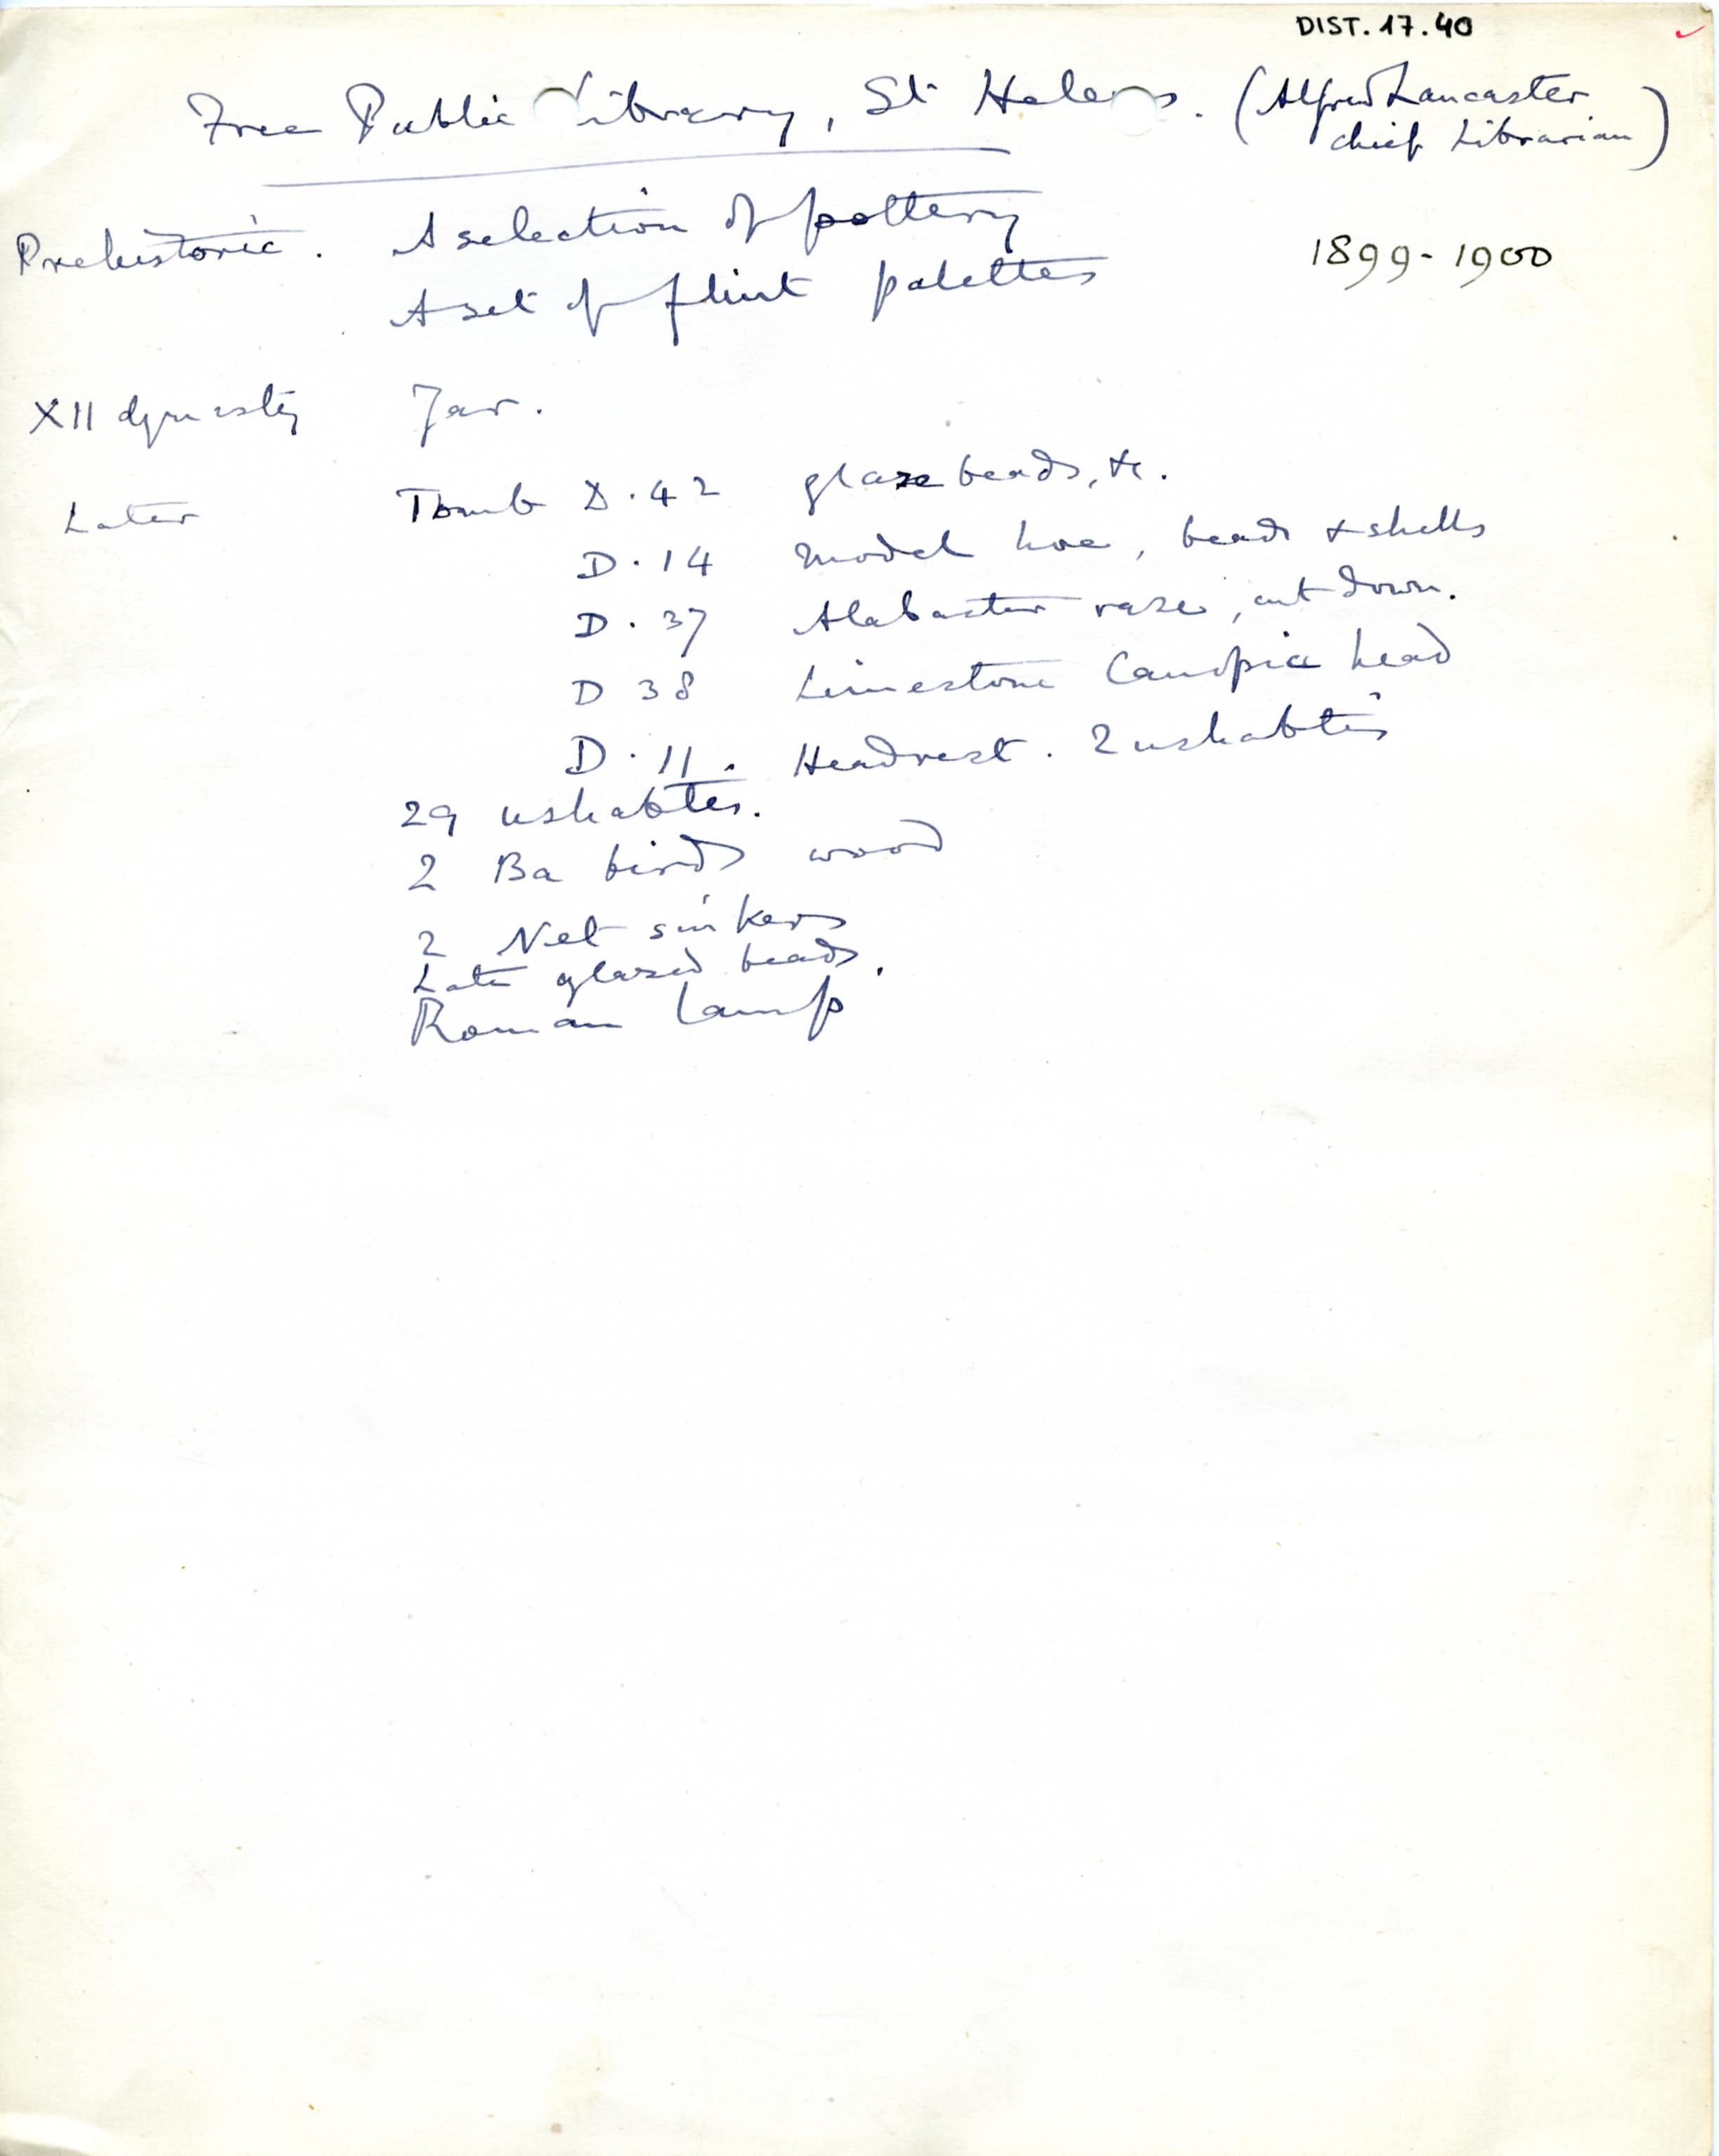 DIST. 17. 40
Free Public Library, St Helens. (Alfred Lancaster
chief Librarian)
Prehistoric. A selection of pottery
1899-1900
A set of flint palettes
XII dynasty Jar.
Later Tomb D.42 glaze beads, &c.
D.14 Model hoe, beads & shells
D.37 Alabaster vase, cut down.
D 38 Limestone Canopic head
D.11. Headrest. 2 ushabtis
29 ushabtis.
2 Ba birds wood
2 Net sinkers
Late glazed beads.
Roman lamp